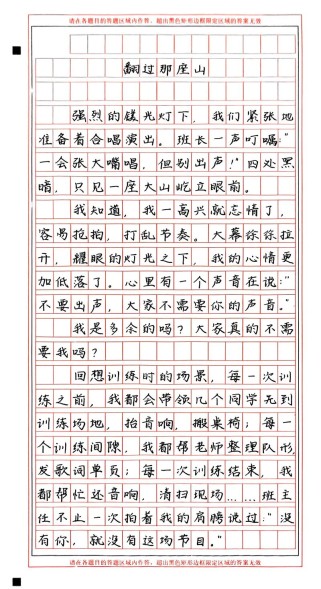 请在各题目的答题区域内作答，超出黑色矩形边框限定区域的答案无效
翻过那座山
强烈的镁光灯下，我们紧张地
准备着合唱演出。班长一声叮嘱："
一会张大嘴唱，但别出声！"四处黑
暗，只见一座大山屹立眼前。
我知道，我一高兴就忘情了，
容易抢拍，打乱节奏。大幕徐徐拉
开，耀眼的灯光之下，我的心情更
加低落了。心里有一个声音在说："
不要出声，大家不需要你的声音。"
我是多余的吗？大家真的不需
要我吗？
回想训练时的场景，每一次训
练之前，我都会带领几个同学先到
训练场地，抬音响，搬桌椅；每一
个训练间隙，我都帮老师整理队形，
发歌词单页；每一次训练结束，我
都帮忙还音响，清扫现场……班主
任不止一次拍着我的肩膀说过："没
有你，就没有这场节目。"
请在各题目的答题区域内作答，超出黑色矩形边框限定区域的答案无效